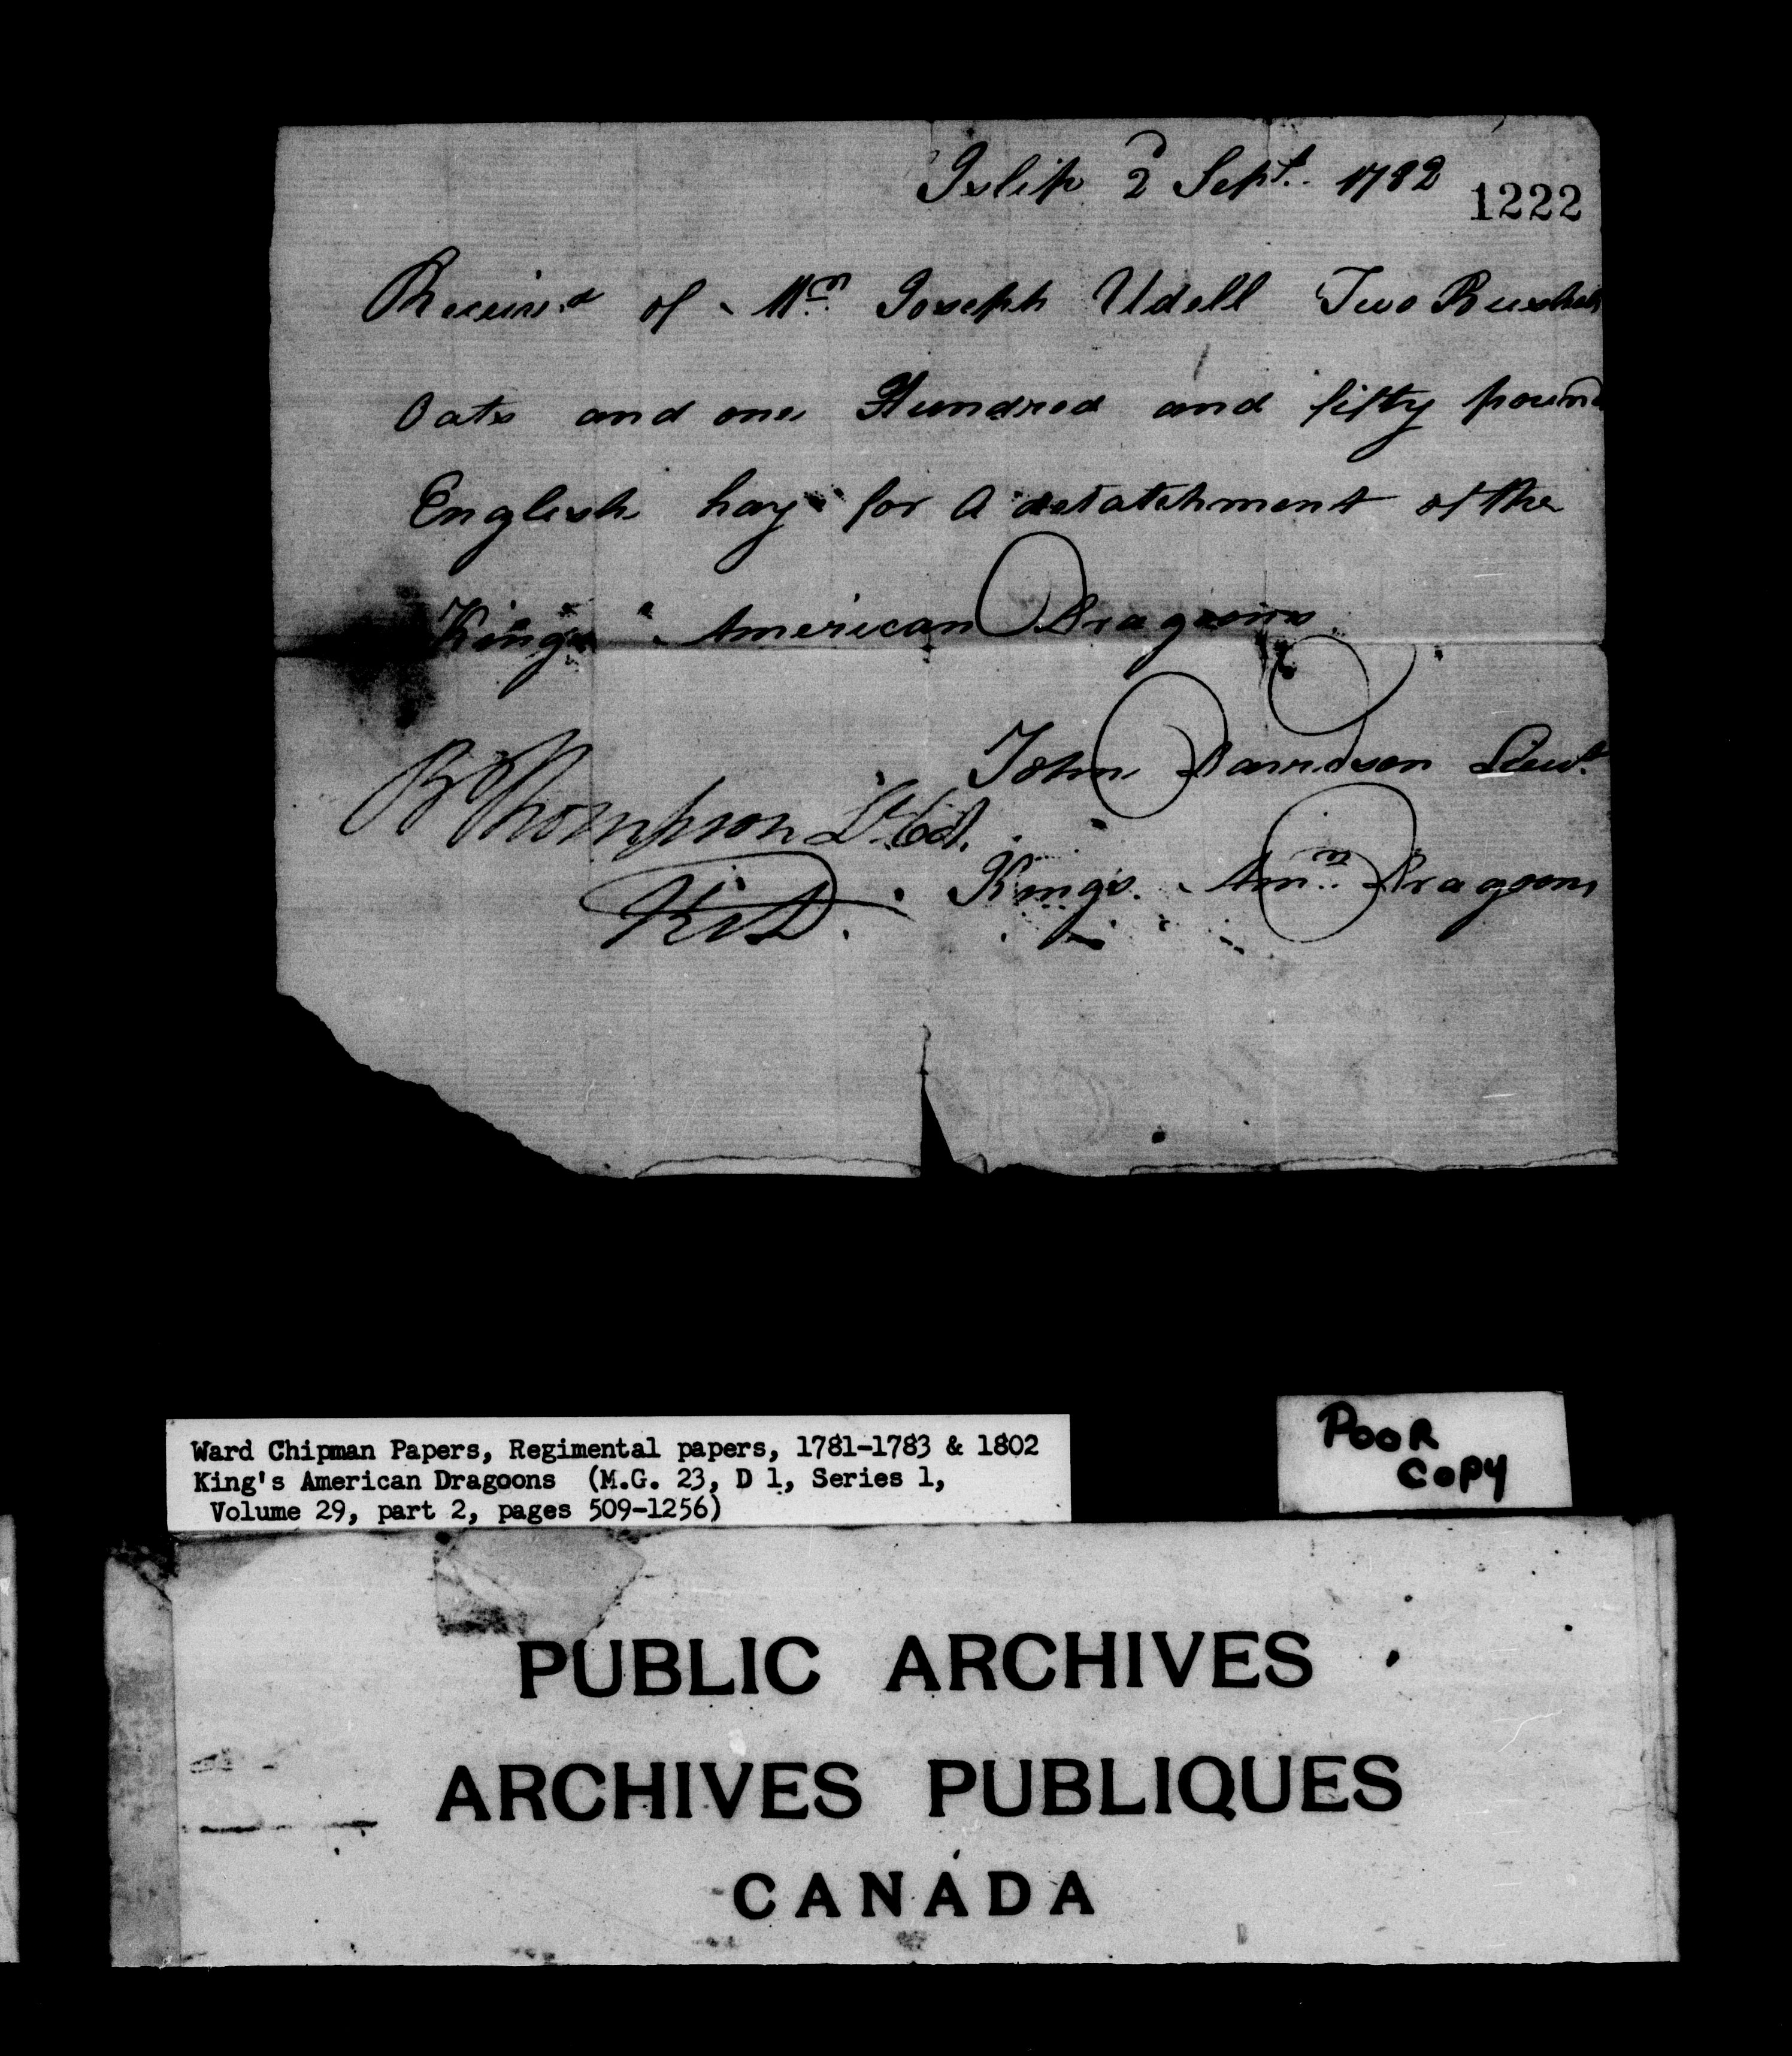 Islip 2 Sept. 1782
1222
Receiv.d of Mr. Joseph Udell Two Bushels
Oats and one Hundred and fifty pound
English hay for a detatchment of the
Kings American Dragoons
John Davidson Lieut.
B Thompson Lt. Col.
Kings Amn. Dragoons
K A D.
Ward Chipman Papers, Regimental papers, 1781-1783 & 1802
King's American Dragoons (M.G. 23, D 1, Series 1,
Volume 29, part 2, pages 509-1256)
POOR
COPY
PUBLIC ARCHIVES
ARCHIVES PUBLIQUES
CANADA